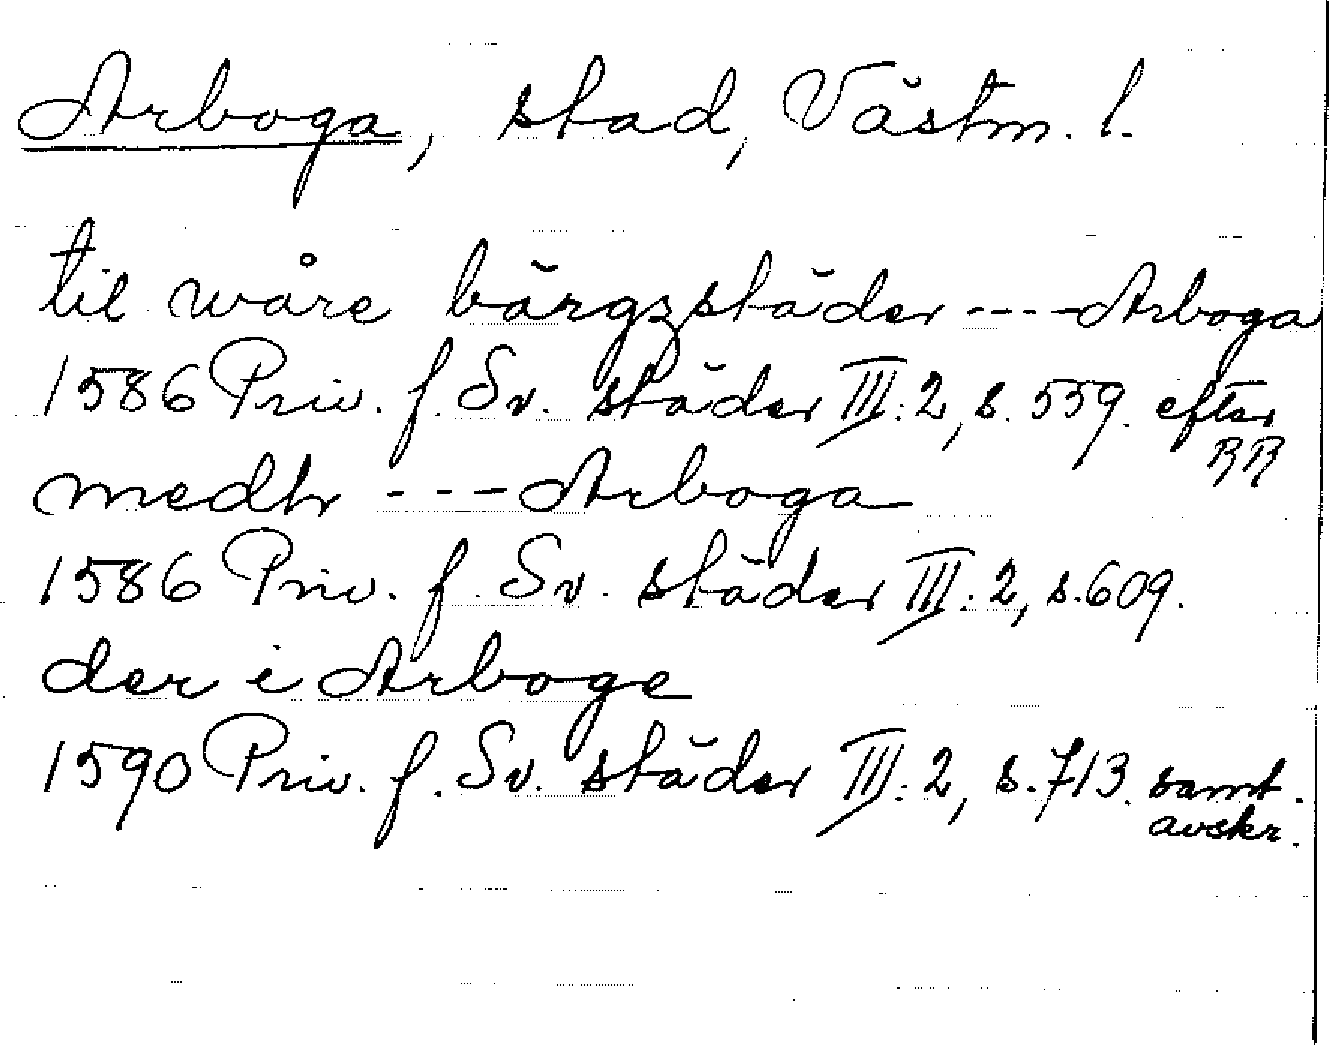 Arboga, stad, Västm. l.
til wåre bärgzstäder --- Arboga
1586 Priv. f. Sv. städer III:2, s. 559. efter
RR
medh --- Arboga
1586 Priv. f. Sv. städer III:2, s. 609.
der i Arboge
1590 Priv. f. Sv. städer III:2, s. 713. samt.
avskr.